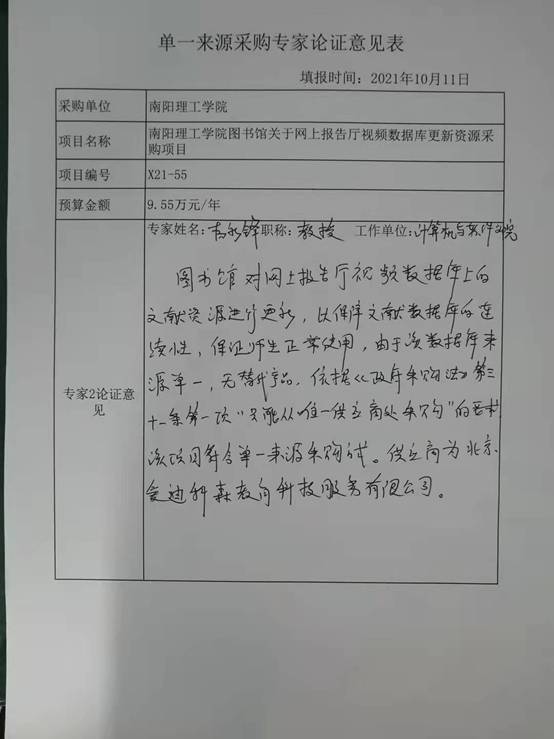 单一来源采购专家论证意见表
填报时间：2021年10月11日
采购单位 南阳理工学院
项目名称 南阳理工学院图书馆关于网上报告厅视频数据库更新资源采
购项目
项目编号 X21-55
预算金额 9.55万元/年
专家姓名： 职称：教授 工作单位：计算机与软件学院
图书馆对网上报告厅视频数据库上的
文献资源进行更新，以保障文献数据库的连
续性，保证师生正常使用，由于该数据库来
源单一，无替代产品，依据《政府采购法》第三
十一条第一项“只能从唯一供应商处采购”的要求，
该项目符合单一来源采购方式。供应商为北京
爱迪科森教育科技服务有限公司。
专家2论证意
见